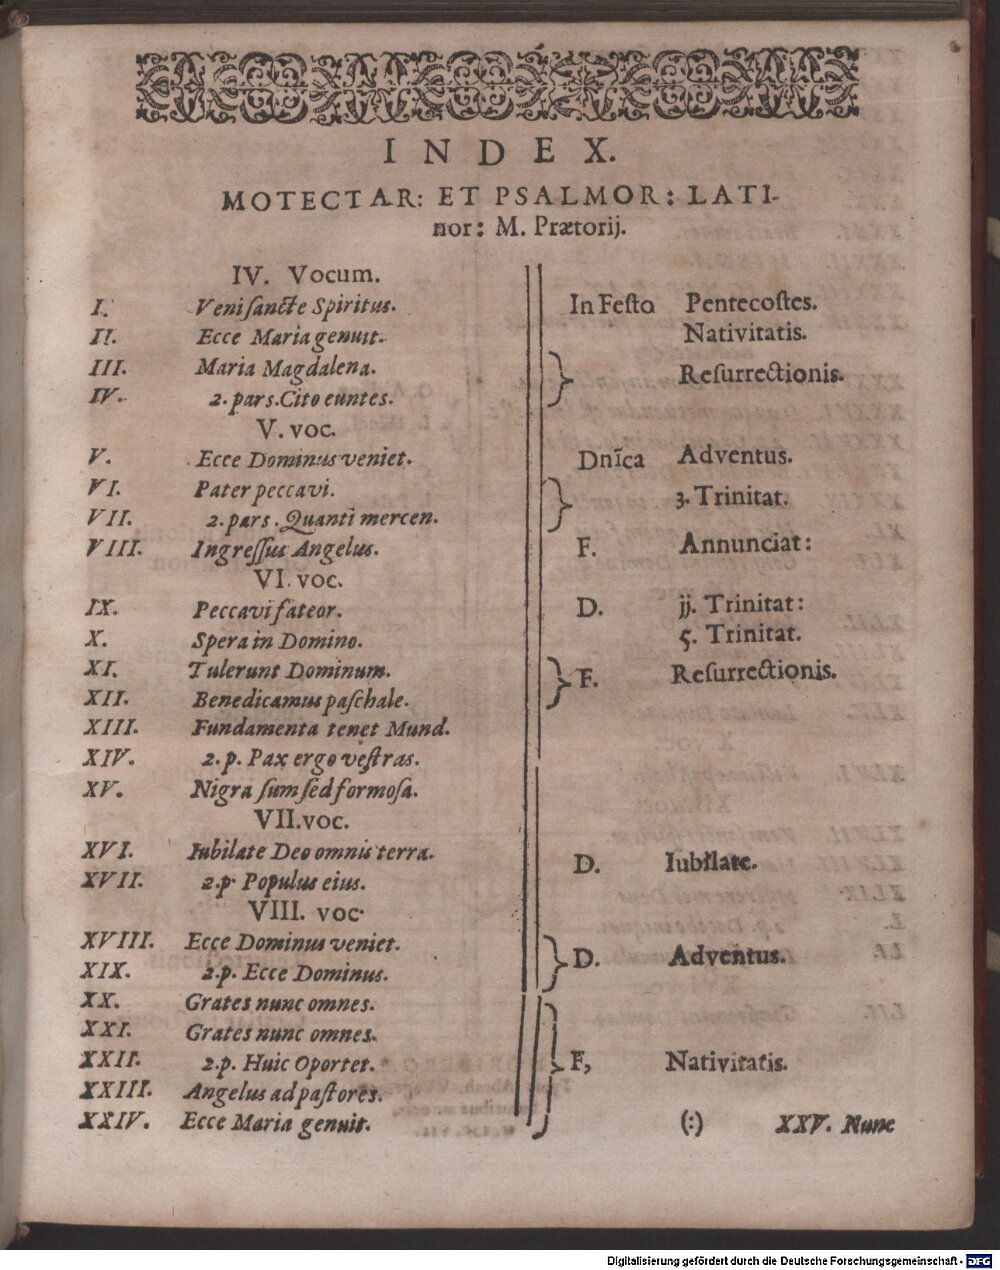 INDEX.
MOTECTAR: ET PSALMOR: LATI-
nor: M. Prætorij.
IV. Vocum.
I. Veni sancte Spiritus. In Festo Pentecostes.
II. Ecce Maria genuit. Nativitatis.
III. Maria Magdalena. Resurrectionis.
IV. 2. pars. Cito euntes.
V. voc.
V. Ecce Dominus veniet. Dnīca Adventus.
VI. Pater peccavi. 3. Trinitat.
VII. 2. pars. Quanti mercen.
VIII. Ingressus Angelus. F. Annunciat:
VI. voc.
IX. Peccavi fateor. D. jj. Trinitat:
X. Spera in Domino. 5. Trinitat.
XI. Tulerunt Dominum. F. Resurrectionis.
XII. Benedicamus paschale.
XIII. Fundamenta tenet Mund.
XIV. 2. p. Pax ergo vestras.
XV. Nigra sum sed formosa.
VII. voc.
XVI. Iubilate Deo omnis terra. D. Iubilate.
XVII. 2.p. Populus eius.
VIII. voc.
XVIII. Ecce Dominus veniet. D. Adventus.
XIX. 2.p. Ecce Dominus.
XX. Grates nunc omnes.
XXI. Grates nunc omnes.
XXII. 2.p. Huic Oportet. F, Nativitatis.
XXIII. Angelus ad pastores.
XXIV. Ecce Maria genuit. (:) XXV. Nunc
Digitalisierung gefördert durch die Deutsche Forschungsgemeinschaft - DFG